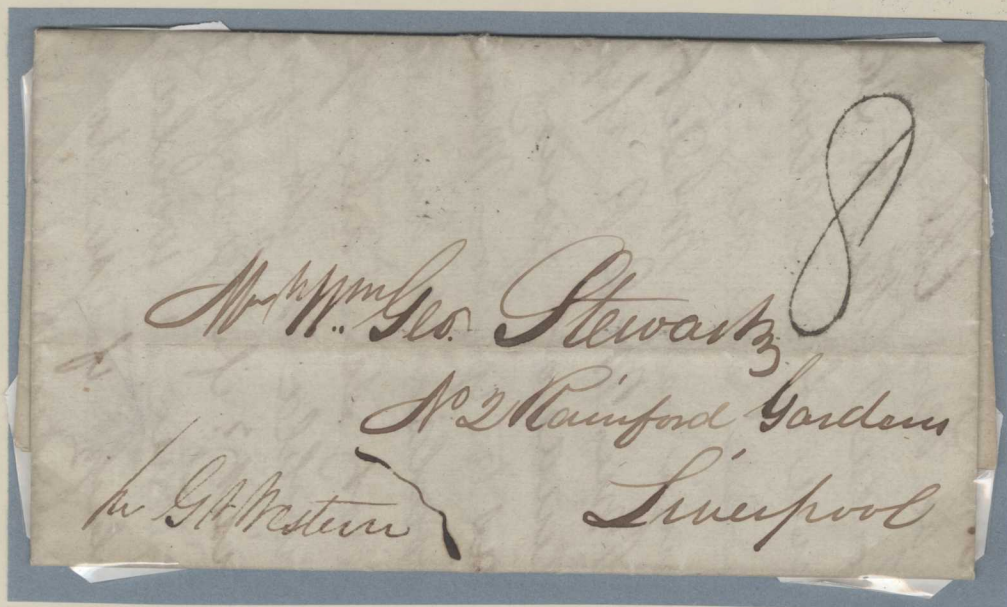 8
Mr Wm. Geo. Stewart
No 2 Rainford Gardens
Liverpool
pr Gt Western